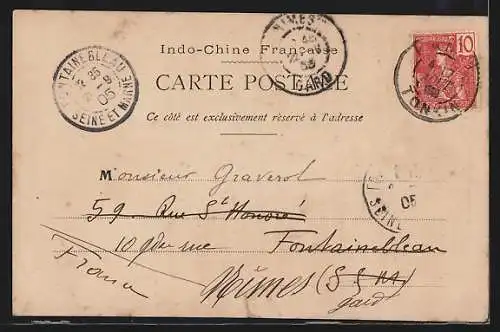 Indo-Chine Française
CARTE POSTALE
Ce côté est exclusivement réservé à l'adresse
FONTAINEBLEAU
05
SEINE ET MARNE
NIMES
GARD
10
TONKIN
SEINE
05
Monsieur Graverol
59 Rue St Honoré
Fontainebleau
(S & M)
France
Nîmes
gard